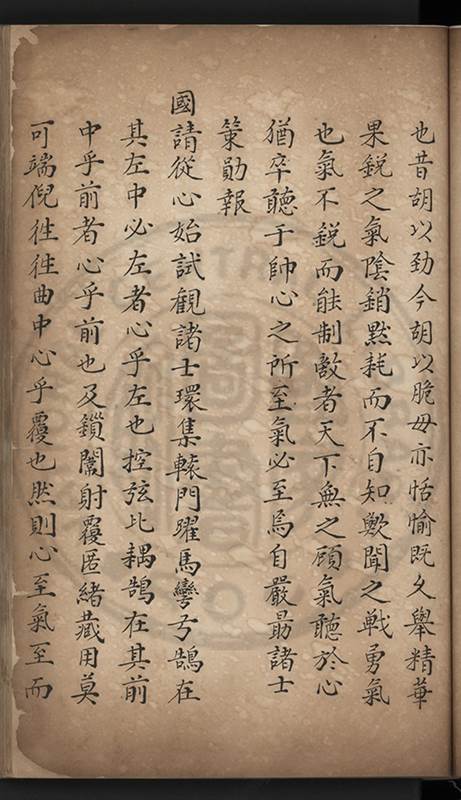 也昔胡以勁今胡以脆毋亦恬愉既久舉精華
果銳之氣陰銷黙耗而不自知歟聞之戦勇氣
也氣不銳而能制敵者天下無之顧氣聽於心
猶卒聽于帥心之所至氣必至焉自嚴勗諸士
策勛報
國請從心始試觀諸士環集轅門躍馬彎弓鵠在
其左中必左者心乎左也控弦比耦鵠在其前
中乎前者心乎前也及鎖闈射覆匿緒藏用莫
可端倪徃徃曲中心乎覆也然則心至氣至而